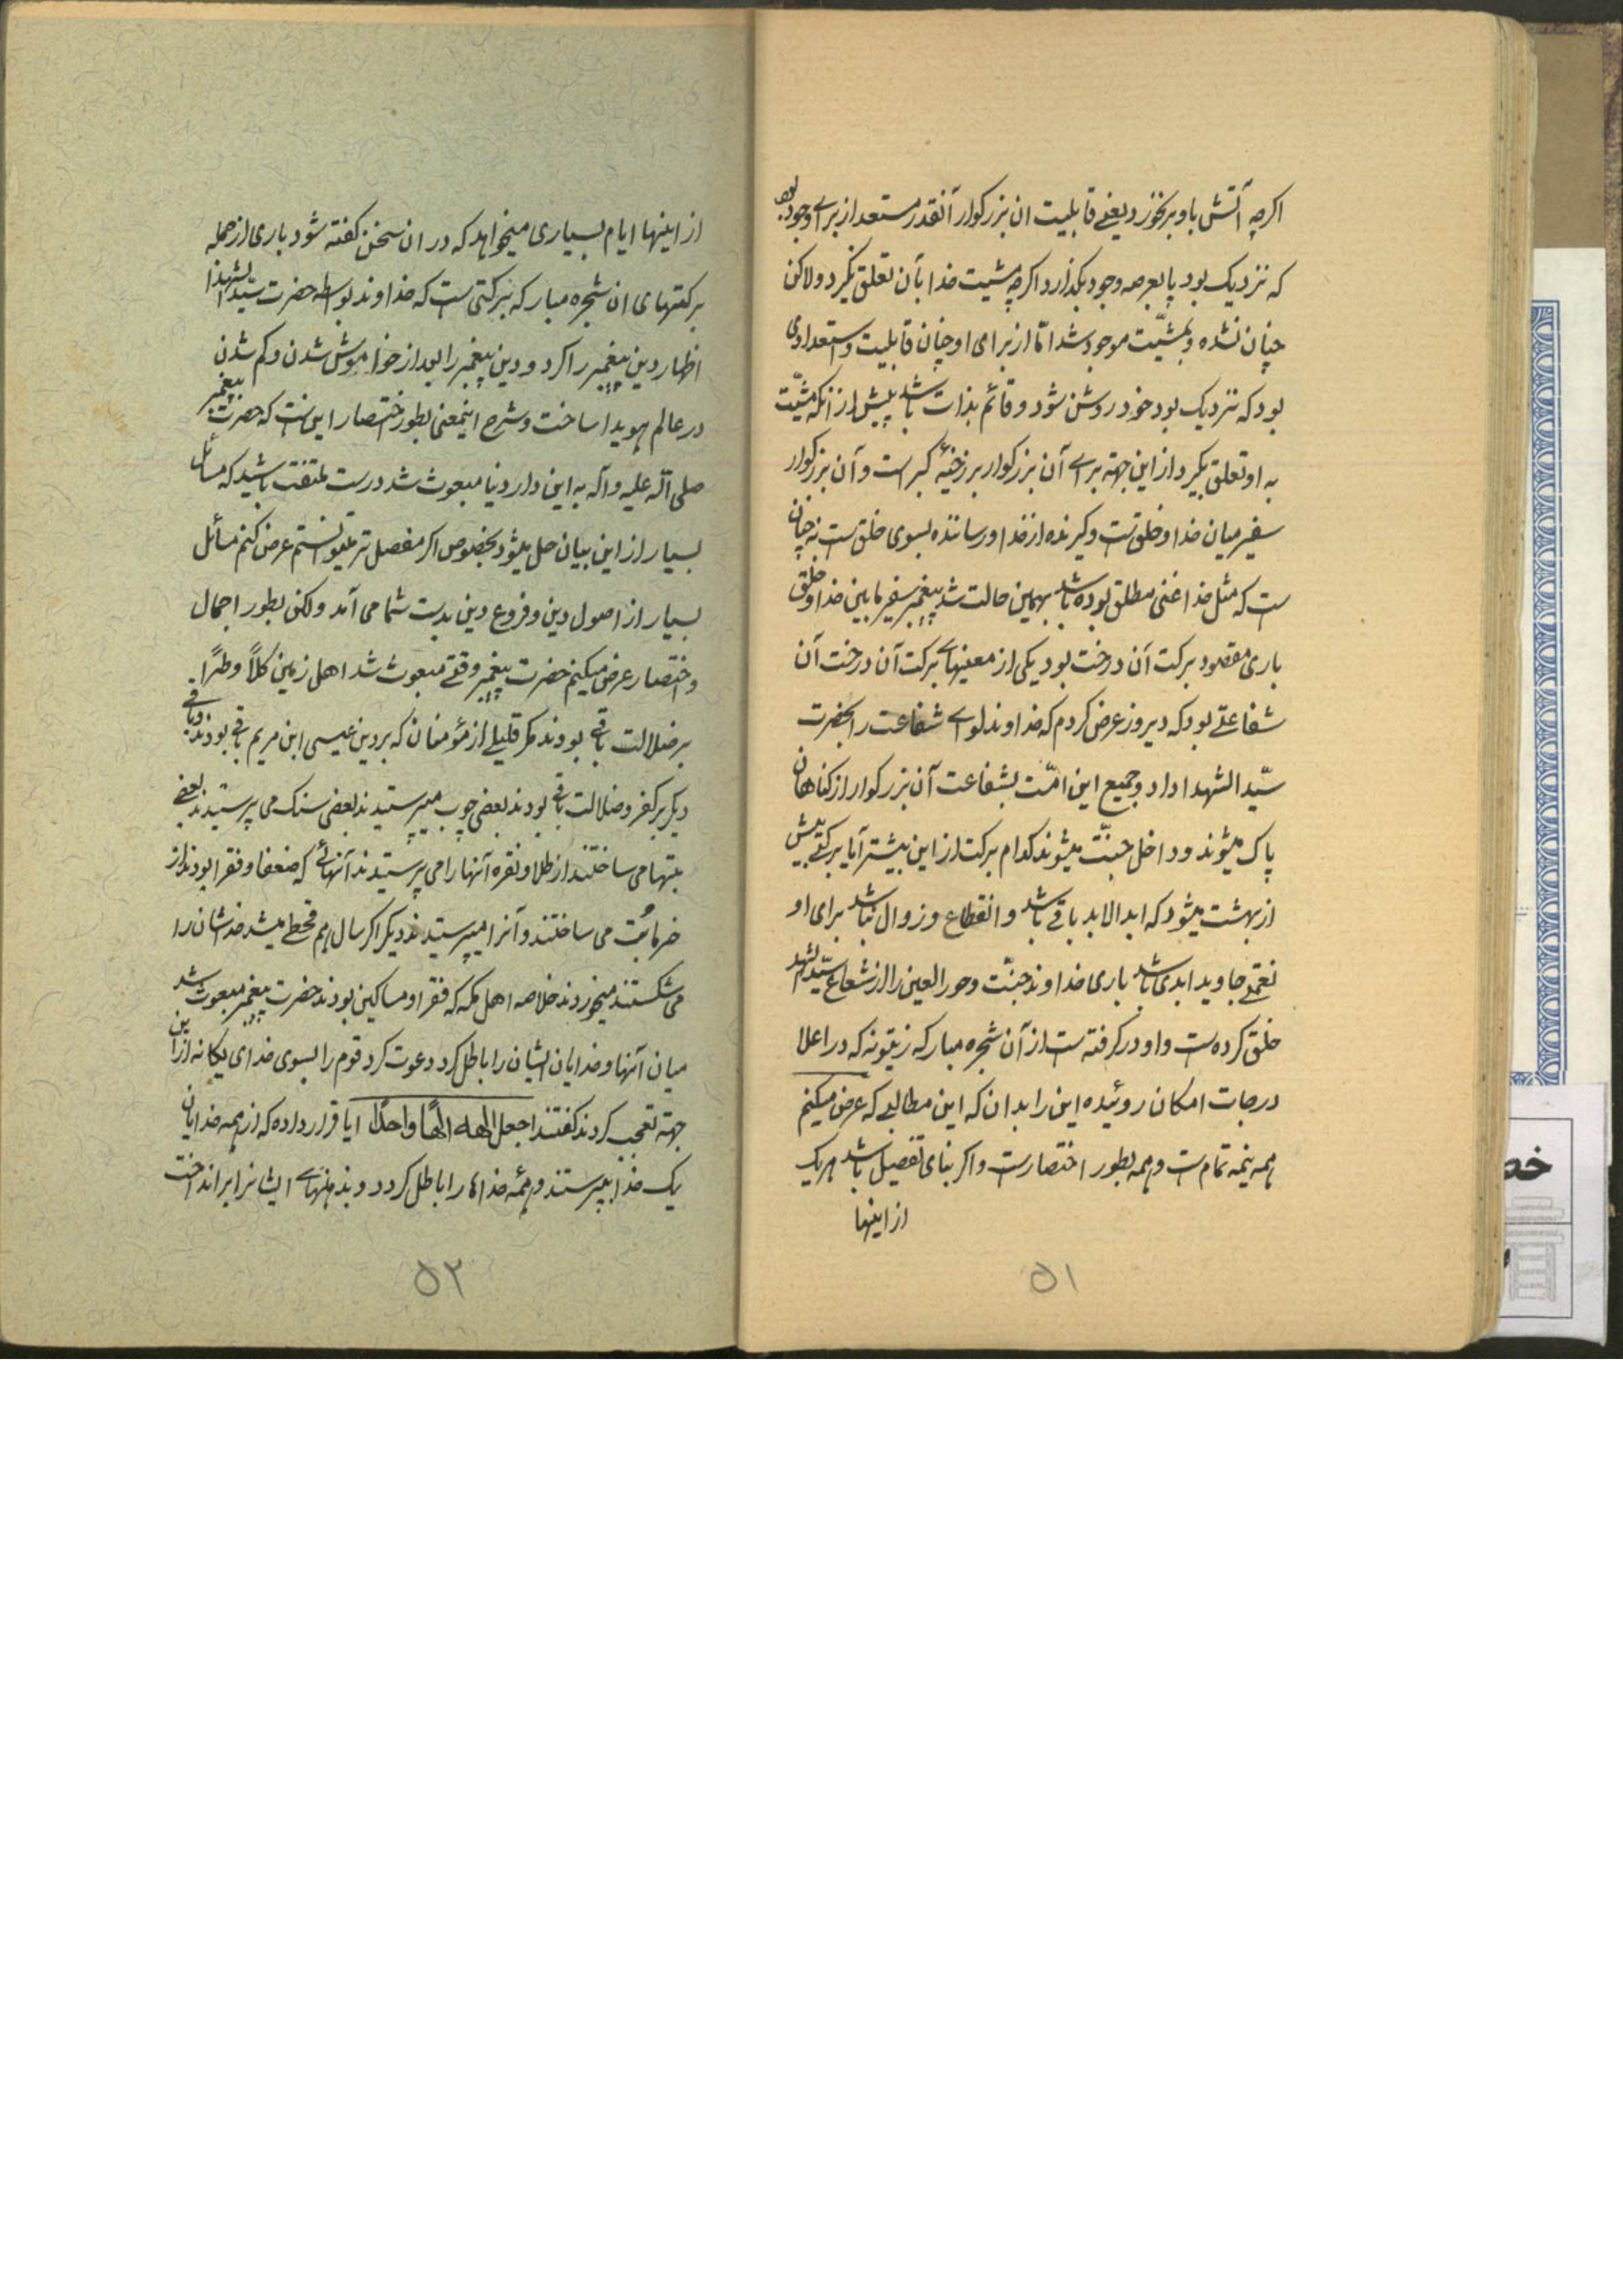 اگرچه آتش باو بر نخورد یعنی قابلیت ان بزرگوار آنقدر مستعد از برای وجود بود
که نزدیک بود پا بعرصه وجود بگذارد اگرچه مشیت خدا بآن تعلق نگیرد ولاکن
چنان نشده و بمشیّت موجود شد امّا از برای او چنان قابلیت و استعدادی
بود که نزدیک بود خود روشن شود و قائم بذات باشد پیش از آنکه مشیّت
به او تعلق بگیرد از این جهة برای آن بزرگوار برزخیّه کبر است و آن بزرگوار
سفیر میان خدا و خلق است و گیرنده از خدا و رساننده بسوی خلق است نه چنان
ست که مثل خدا غنی مطلق بوده باشد بهمین حالت شد پیغمبر سفیر مابین خدا و خلق
باری مقصود برکت آن درخت بود یکی از معنیهای برکت آن درخت آن
شفاعتی بود که دیروز عرض کردم که خداوند لوای شفاعت را بحضرت
سیّد الشهدا داد و جمیع این امّت بشفاعت آن بزرگوار از کناهان
پاک میشوند و داخل جنّت میشوند کدام برکت از این بیشتر آیا برکتی بیش
از بهشت میشود که ابد الاباد باقی باشد و انقطاع و زوال نباشد برای او
نعمتی جاوید ابدی باشد باری خداوند جنّت و حور العین را از شعاع سیّد الشهدا
خلق کرده ست و او در گرفته ست از آن شجره مبارکه زیتونه که در اعلا
درجات امکان روئیده این را بدان که این مطالبی که عرض میکنم
همه نیمه تمام ست و همه بطور اختصار ست و اگر بنای تفصیل باشد هر یک
از اینها
۵۱
از اینها ایام بسیاری میخواهد که در ان سخن گفته شود باری از جمله
برکتهای ان شجره مبارکه برکتی ست که خداوند بواسطه حضرت سیّد الشهدا
اظهار دین پیغمبر را کرد و دین پیغمبر را بعد از فراموش شدن و گم شدن
در عالم هویدا ساخت و شرح اینمعنی بطور اختصار این ست که حضرت پیغمبر
صلی اللّه علیه و آله به این دار دنیا مبعوث شد درست ملتفت باشید که مسائل
بسیار از این بیان حل میشود بخصوص اگر مفصل تر میتوانستم عرض کنم مسائل
بسیار از اصول دین و فروع دین بدست شما می آمد ولکن بطور اجمال
و اختصار عرض میکنم حضرت پیغمبر وقتی مبعوث شد اهل زمین کلاً و طرّاً
بر ضلالت باقی بودند مگر قلیلی از مؤمنان که بر دین عیسی ابن مریم باقی بودند و باقی
دیگر بر کفر و ضلالت باقی بودند بعضی چوب میپرستیدند بعضی سنگ می پرستیدند بعضی
بتها می ساختند از طلا و نقره آنها را می پرستیدند آنهائی که ضعفا و فقرا بودند از
خرما بُت می ساختند و آنرا میپرستیدند دیگر اگر سال هم قحطی میشد خداشان را
می شکستند میخوردند خلاصه اهل مکه که فقرا و مساکین بودند حضرت پیغمبر مبعوث شد
میان آنها و خدایان ایشان را باطل کرد دعوت کرد قوم را بسوی خدای یگانه از این
جهة تعجب کردند گفتند اجعل الهه الهاً واحداً ایا قرار داده که از همه خدایان
یک خدا بپرستند و همهٔ خداها را باطل کرد و مذهبهای ایشانرا برانداخت
۵۲
خص